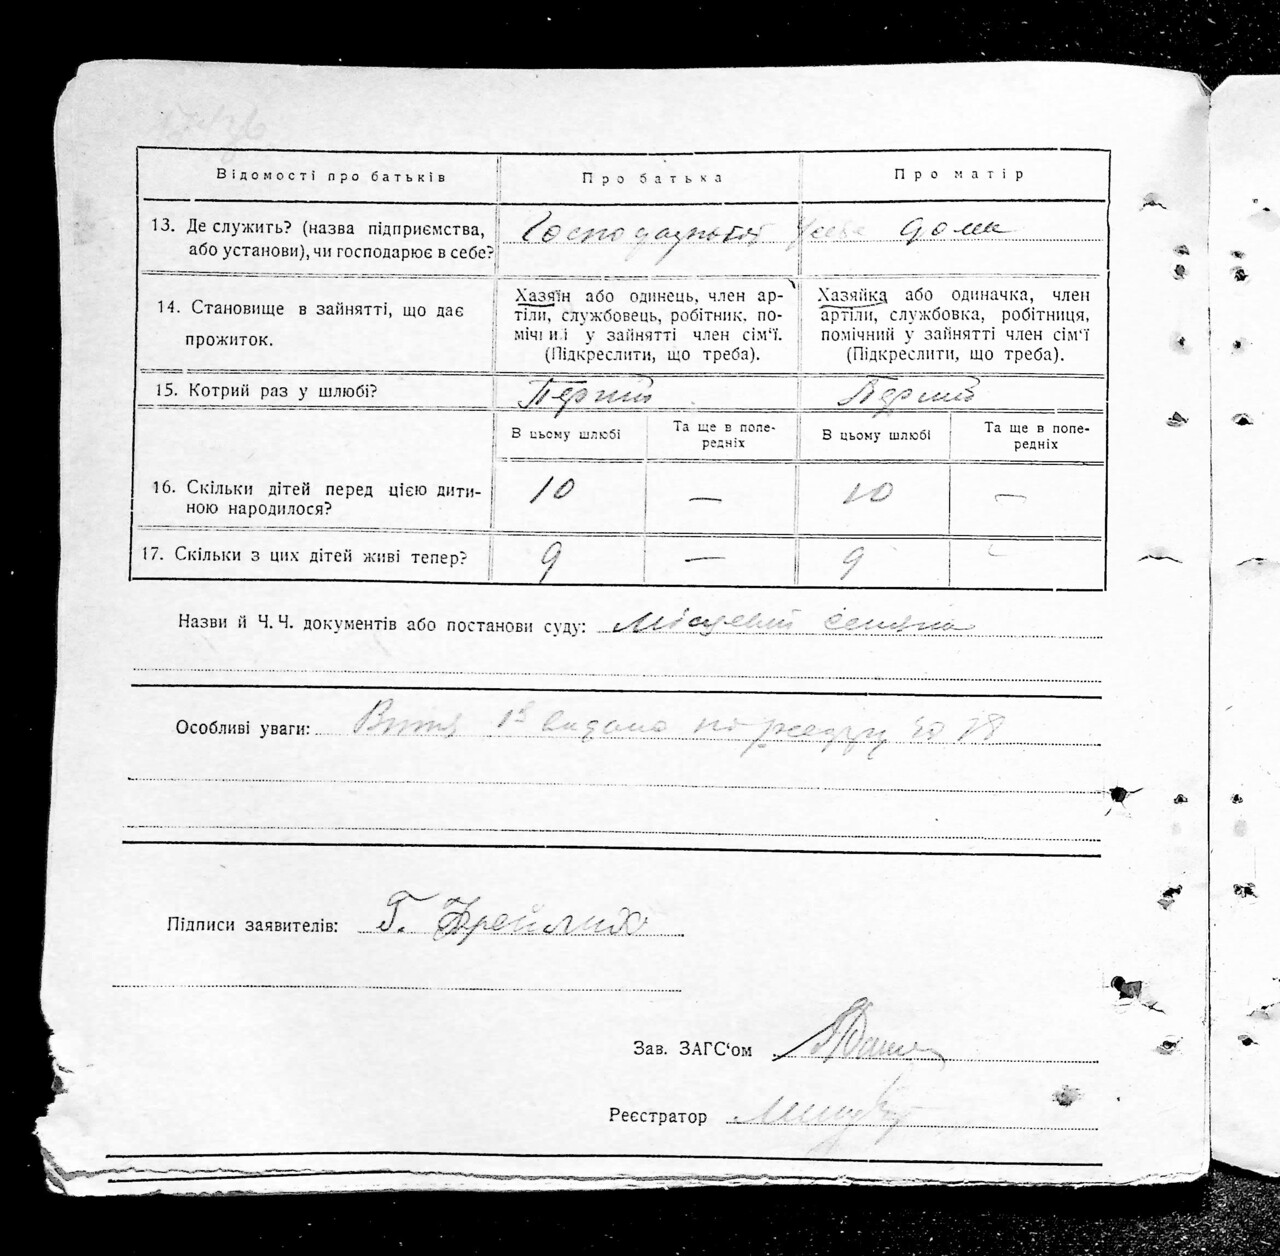 Відомості про батьків
Про батька
Про матір
13. Де служить? (назва підприємства,
або установи), чи господарює в себе?
Господарює
дома
14. Становище в зайнятті, що дає
прожиток.
Хазяїн або одинець, член ар-
тіли, службовець, робітник, по-
мічний у зайнятті член сім‘ї.
(Підкреслити, що треба).
Хазяйка або одиначка, член
артіли, службовка, робітниця,
помічний у зайнятті член сім‘ї
(Підкреслити, що треба).
15. Котрий раз у шлюбі?
Перший
Перший
В цьому шлюбі
Та ще в попе-
редніх
В цьому шлюбі
Та ще в попе-
редніх
16. Скільки дітей перед цією дити-
ною народилося?
10 — 10 —
17. Скільки з цих дітей живі тепер?
9 — 9
Назви й Ч. Ч. документів або постанови суду:
Особливі уваги: видано по
Підписи заявителів: Г. Фрейлих
Зав. ЗАГС‘ом
Реєстратор